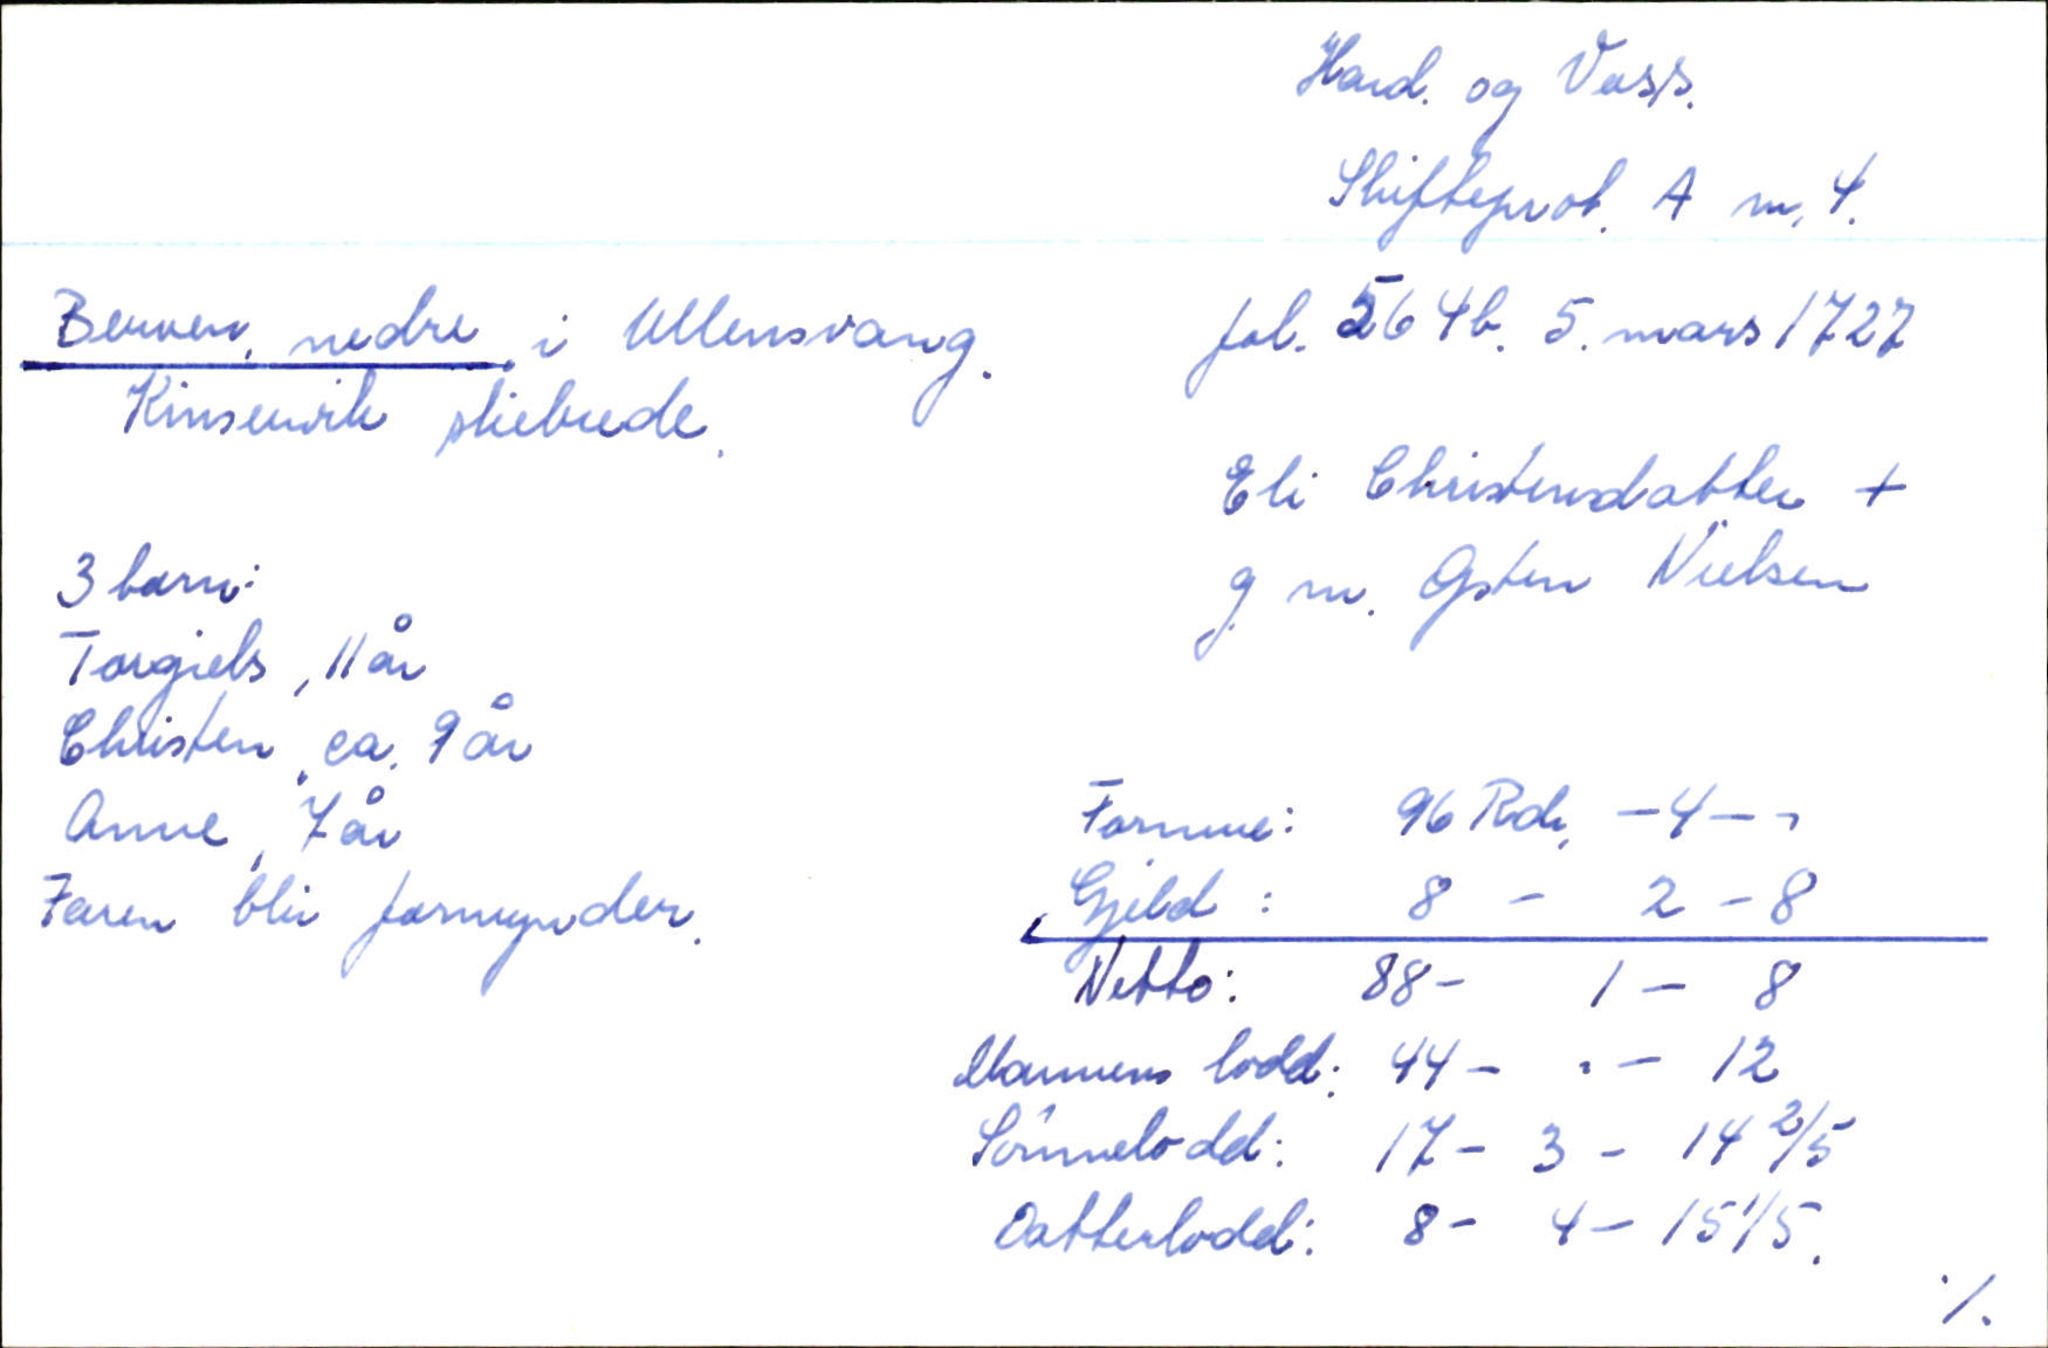 Hard. og Voss.
Skifteprot. A nr. 4.
Berven, nedre, i Ullensvang.
fol. 564b. 5. mars 1727
Kinservik skibrede.
Eli Christensdatter +
g. m. Østen Nielsen
3 barn:
Torgiels, 11 år
Christen, ca. 9 år
Anne, 7 år
Faren blir formynder.
Formue: 96 Rdr, - 4 - -
Gjeld: 8 - 2 - 8
Netto: 88 - 1 - 8
Mannens lodd: 44 - . - 12
Sönnelodd: 17 - 3 - 14 2/5
Datterlodd: 8 - 4 - 15 1/5.
./.